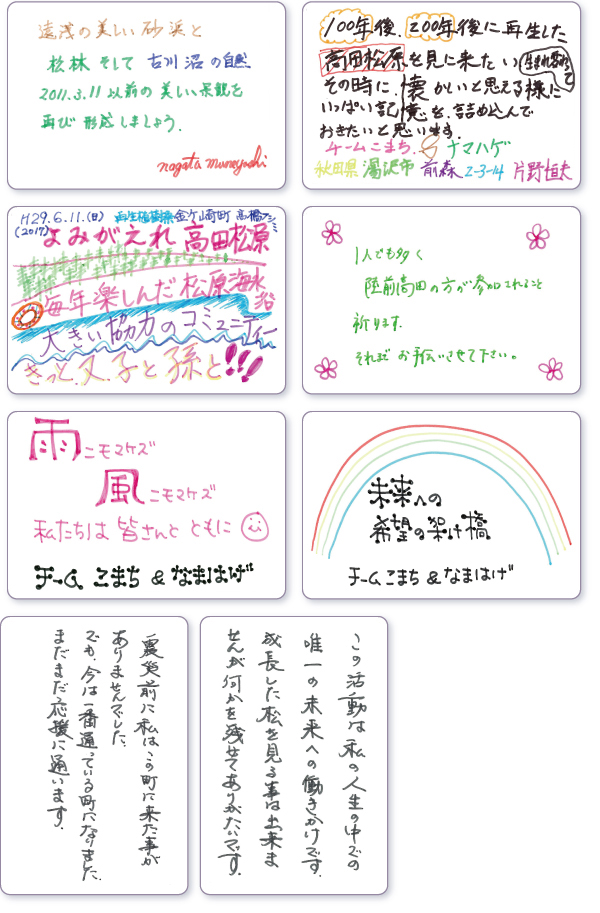 遠浅の美しい砂浜と
松林そして古川沼の自然
2011.3.11以前の美しい景観を
再び形成しましょう.
nagata muneyoshi
100年後、200年後に再生した
高田松原を見に来たい 生まれ変わって
その時に、懐かしいと思える様に
いっぱい記憶を、詰め込んで
おきたいと思います。
チームこまち. & ナマハゲ
秋田県 湯沢市 前森 2-3-14 片野恒夫
H29.6.11.(日) 再生植樹祭 金ケ崎町 高橋フジミ
(2017)
よみがえれ 高田松原
毎年楽しんだ松原海水浴
大きい協力のコミュニティー
きっと、又、子と孫と!!!
1人でも多く
陸前高田の方が参加されること
祈ります.
それまでお手伝いさせて下さい。
雨ニモマケズ
風ニモマケズ
私たちは皆さんと ともに
チーム こまち & なまはげ
未来への
希望の架け橋
チームこまち & なまはげ
震災前に私はこの町に来た事が
ありませんでした.
でも、今は一番通っている町になりました.
まだまだ応援に通います.
この活動は私の人生の中での
唯一の未来への働きかけです.
成長した松を見る事は出来ま
せんが何かを残せてありがたいです.